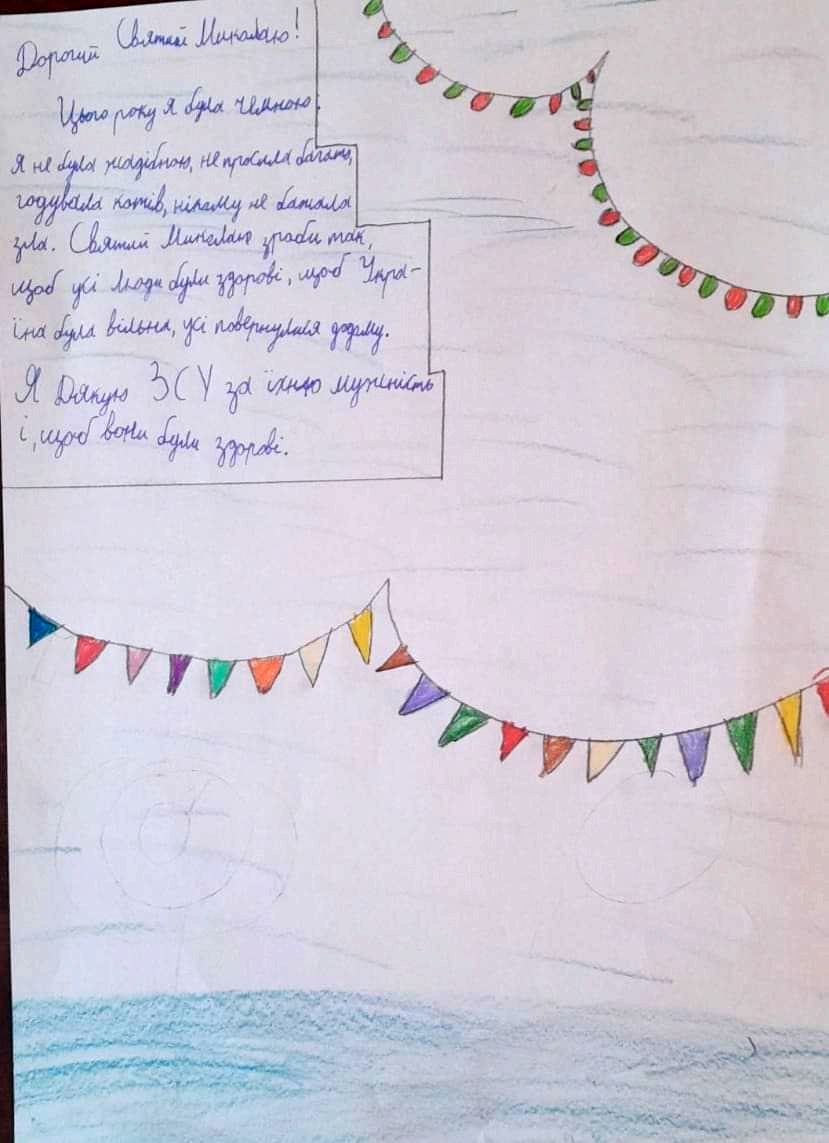 Дорогий Святий Миколаю!
Цього року я була чемною.
Я не була жадібною, не просила багато,
годувала котів, нікому не бажала
зла. Святий Миколаю зроби так,
щоб усі люди були здорові, щоб Укра-
їна була вільна, усі повернулися додому.
Я Дякую ЗСУ за їхню мужність
і, щоб вони були здорові.